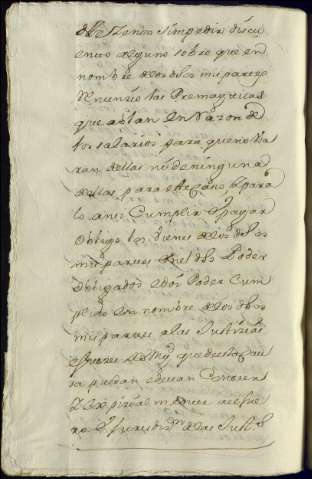 del tienpo sin pedir descu
ento alguno sobre que en
nombre de los dhos mis partes
Renunzio las Premagticas
que ablan En Razon de
los salarios para que no Usa
ran dellas ni de ninguna
dellas, para este caso, y para
lo ansi Cumplir y pagar
Obligo los bienes de los dhos
mis partes En el dho Poder
Obligados e doy Poder Cum
plido En nombre de los dhos
mis partes a las Justicias
e Juezes de su Mag que de esta cau
sa puedan e devan Conozer
y Espezialmente al fue
ro y Jurisdizn de las Justas